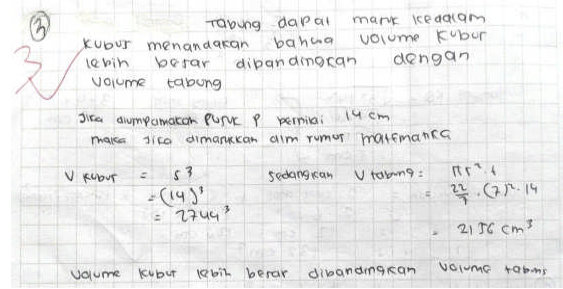 3 Tabung dapat masuk kedalam
3 kubus menandakan bahwa volume kubus
lebih besar dibandingkan dengan
volume tabung
Jika diumpamakan rusuk P bernilai 14 cm
maka jika dimasukkan dlm rumus matematika
V kubus = s³ sedangkan V tabung = πr².t
= (14)³ = 22/7 . (7)². 14
= 2744³ = 2156 cm³
volume kubus lebih besar dibandingkan volume tabung